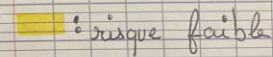 : risque faible